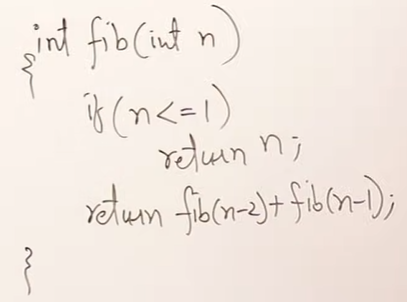 int fib(int n)
{
if(n<=1)
return n;
return fib(n-2)+fib(n-1);
}